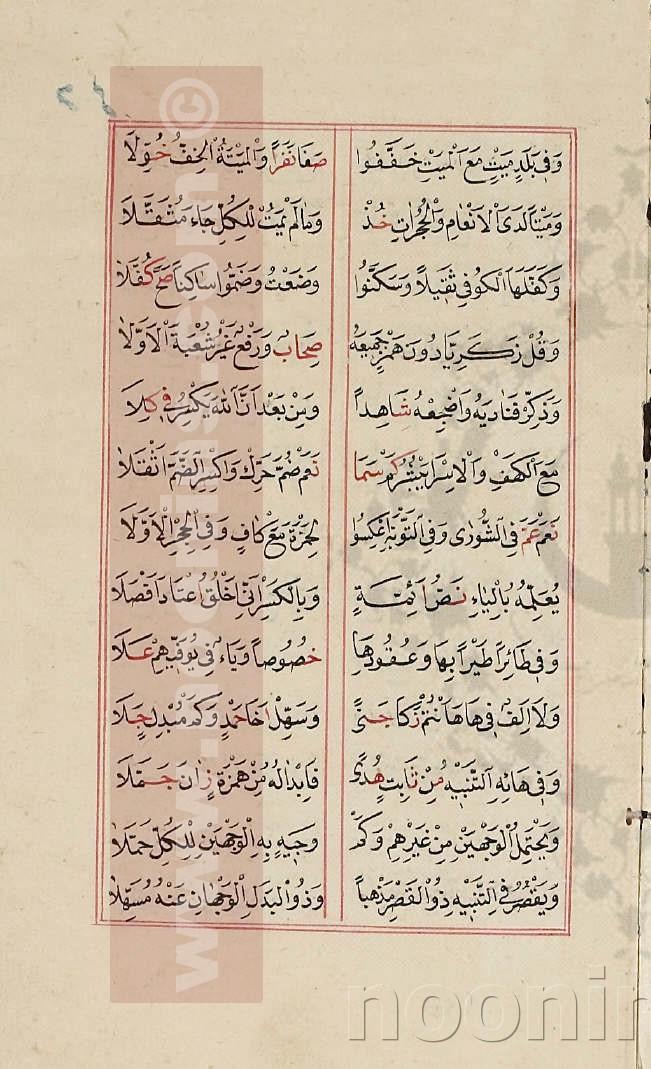 وَفِي بَلَدٍ مَيْتٍ مَعَ الْمَيْتِ خَفَّفُوا صَفَا نَفَراً وَالْمَيْتَةُ الْخِفُّ خُوِّلَا
وَمَيْتاً لَدَى الْأَنْعَامِ وَالْحُجُرَاتِ خُذْ وَمَا لَمْ يَمُتْ لِلْكُلِّ جَاءَ مُثَقَّلَا
وَكَفَّلَهَا الْكُوفِي ثَقِيلاً وَسَكَّنُوا وَضَعْتُ وَضَمُّوا سَاكِناً صَحَّ كُفَّلَا
وَقُلْ زَكَرِيَّا دُونَ هَمْزِ جَمِيعِهِ صِحَابٌ وَرَفْعٌ غَيْرُ شُعْبَةَ الْأَوَّلَا
وَذَكِّرْ فَنَادِيهِ وَأَضْجِعْهُ شَاهِداً وَمِنْ بَعْدُ أَنَّ اللهَ يُكْسَرُ فِي كِلَا
مَعَ الْكَهْفِ وَالْإِسْرَا يَبْشُرُ كَمْ سَمَا نَعَمْ ضُمَّ حَرِّكْ وَاكْسِرِ الضَّمَّ أَثْقَلَا
نَعَمْ عَمَّ فِي الشُّورَى وَفِي التَّوْبَةِ اعْكِسُوا لِحَمْزَةَ مَعْ كَافٍ وَفِي الْحِجْرِ الْأَوَّلَا
يُعَلِّمُهُ بِالْيَاءِ نَصُّ أَئِمَّةٍ وَبِالْكَسْرِ أَنِّي أَخْلُقُ اعْتَادَ أَفْصَلَا
وَفِي طَائِراً طَيْراً بِهَا وَعُقُودِهَا خُصُوصاً وَيَاءٌ فِي يُوَفِّيهِمْ عَلَا
وَلَا أَلِفٌ فِي هَا هَأَنْتُمْ زَكَا جَنىً وَسَهِّلْ أَخَا حَمْدٍ وَكَمْ مُبْدِلٍ جَلَا
وَفِي هَائِهِ التَّنْبِيهُ مِنْ ثَابِتٍ هُدىً وَإِبْدَالُهُ مِنْ هَمْزَةٍ زَانَ جَمَّلَا
وَيَحْتَمِلُ الْوَجْهَيْنِ مِنْ غَيْرِهِمْ وَكَمْ وَجِيهٍ بِهِ الْوَجْهَيْنِ لِلْكُلِّ حَمَّلَا
وَيَقْصُرُ فِي التَّنْبِيهِ ذُو الْقَصْرِ مَذْهَباً وَذُو الْبَدَلِ الْوَجْهَانِ عَنْهُ مُسَهِّلَا
www.noormags.com ©
noonir